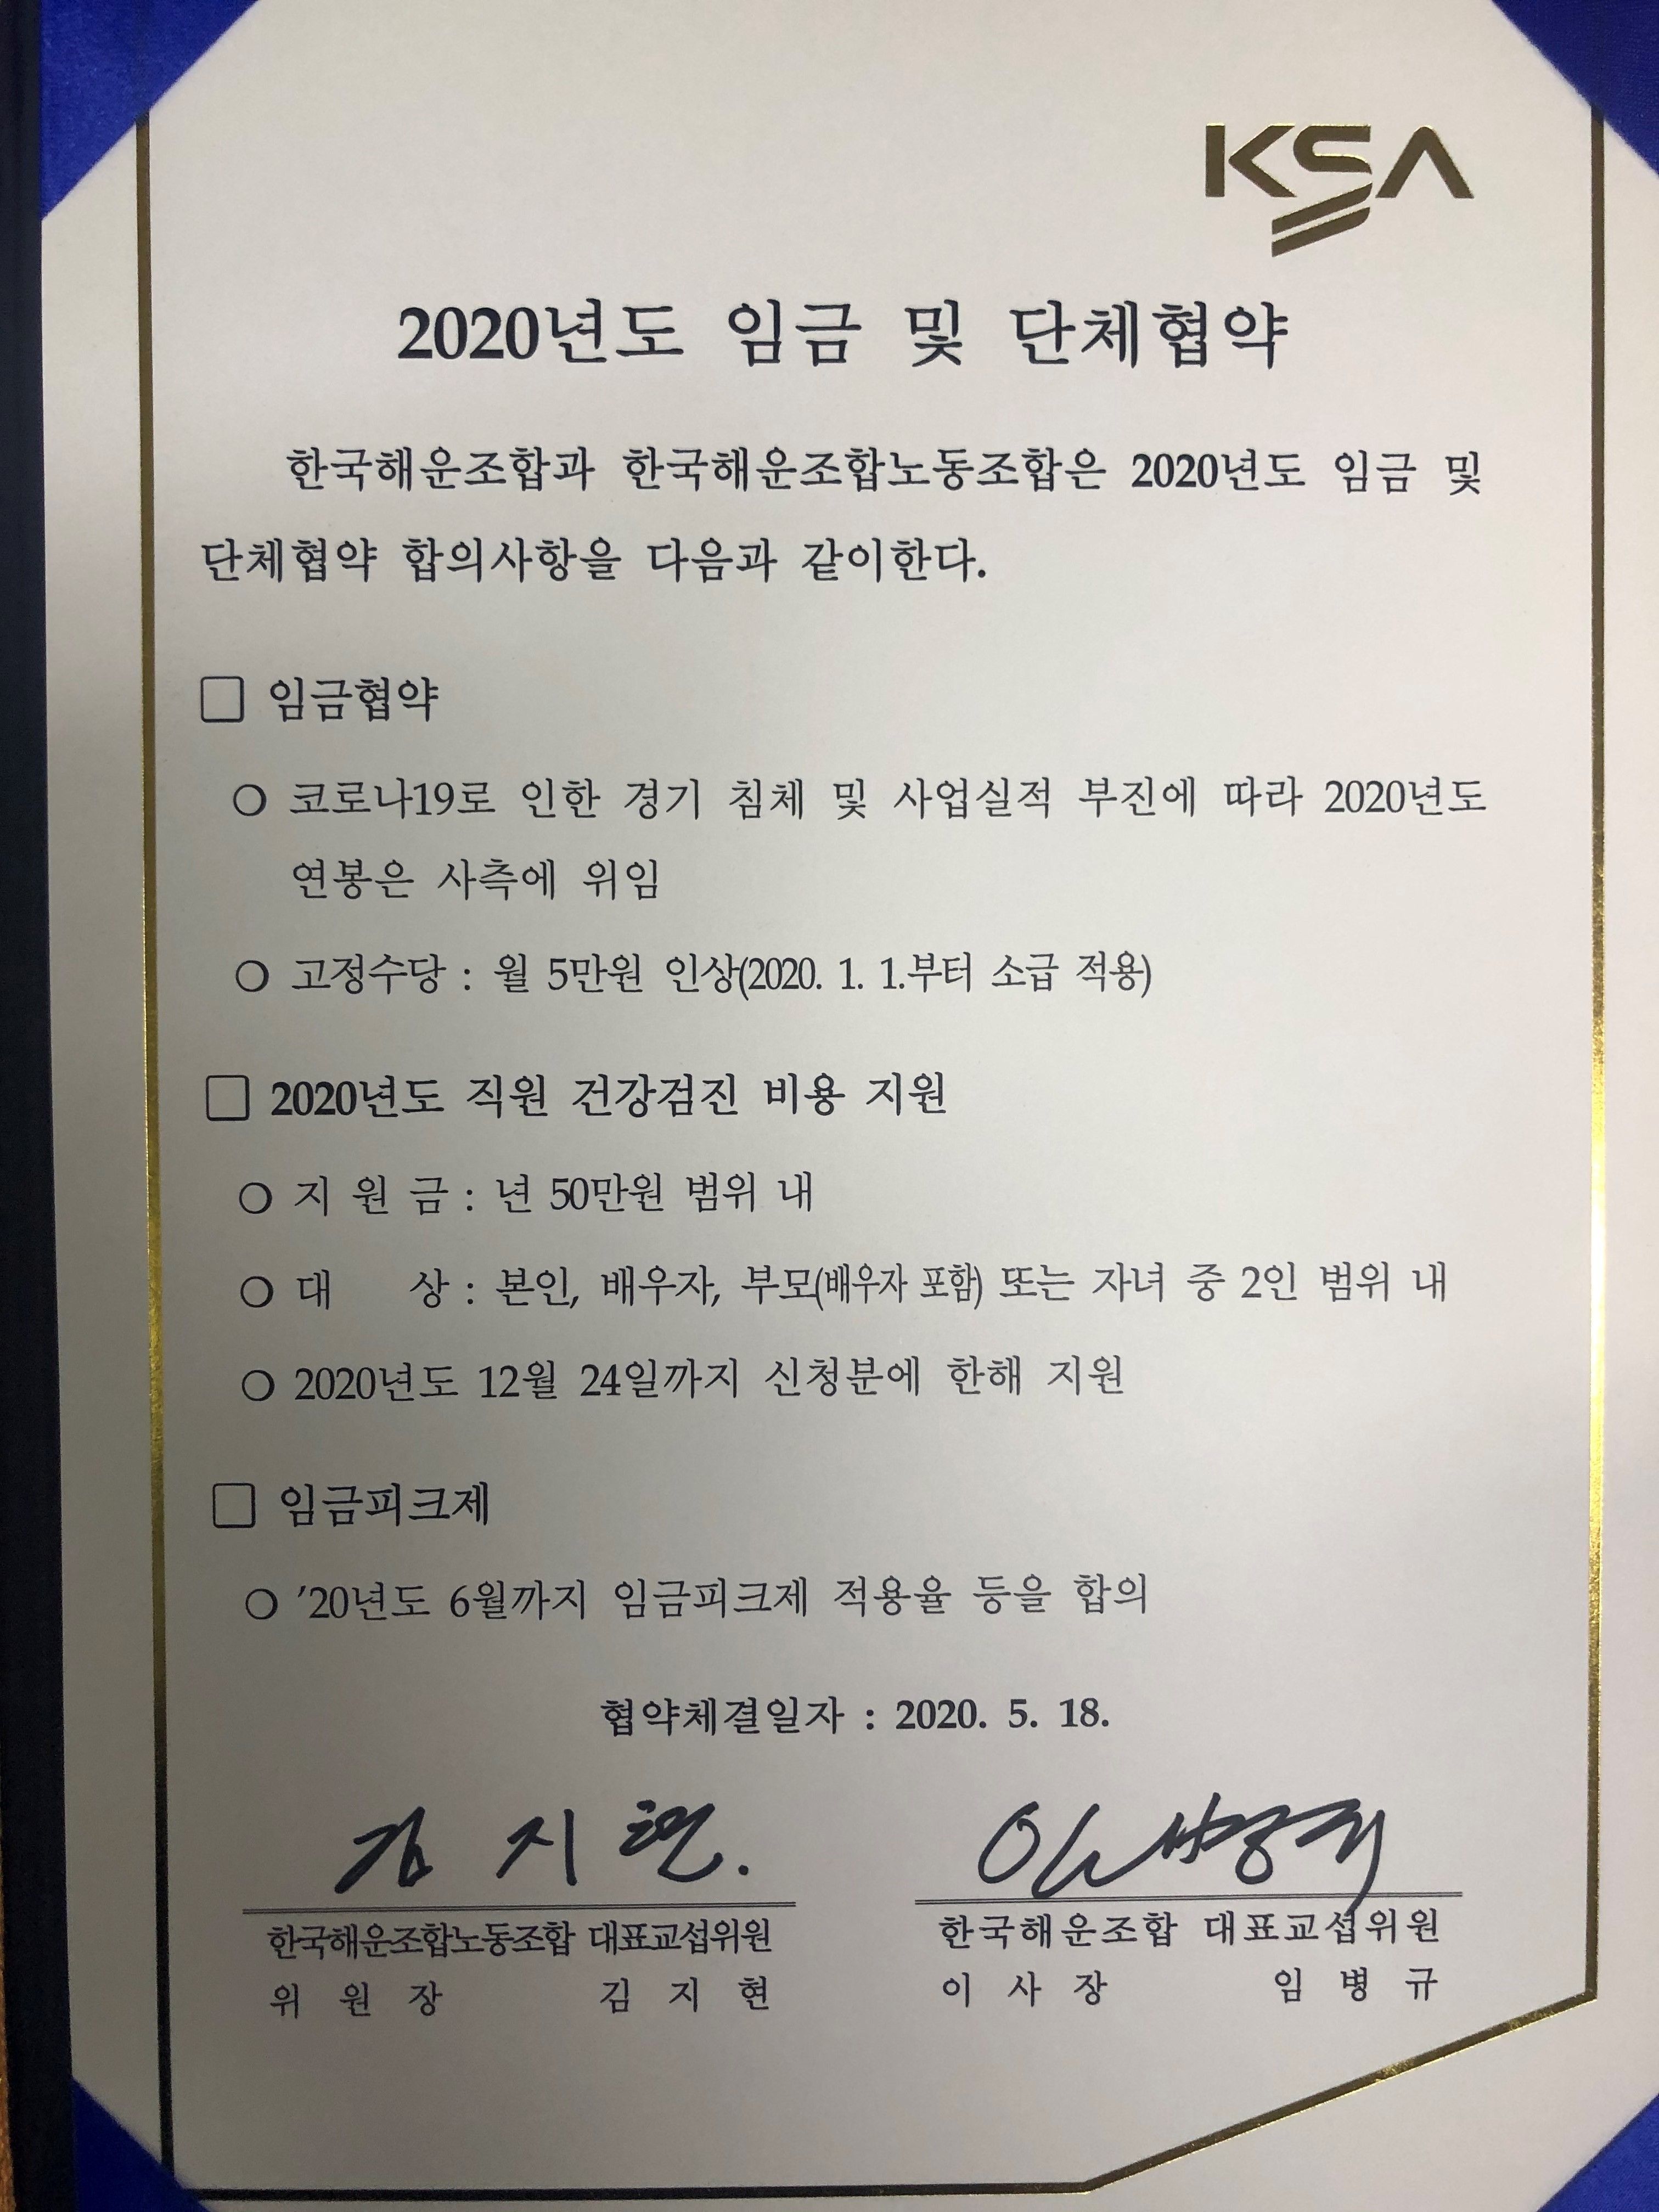 KSA
2020년도 임금 및 단체협약
한국해운조합과 한국해운조합노동조합은 2020년도 임금 및
단체협약 합의사항을 다음과 같이한다.
□ 임금협약
○ 코로나19로 인한 경기 침체 및 사업실적 부진에 따라 2020년도
연봉은 사측에 위임
○ 고정수당 : 월 5만원 인상(2020. 1. 1.부터 소급 적용)
□ 2020년도 직원 건강검진 비용 지원
○ 지 원 금 : 년 50만원 범위 내
○ 대 상 : 본인, 배우자, 부모(배우자 포함) 또는 자녀 중 2인 범위 내
○ 2020년도 12월 24일까지 신청분에 한해 지원
□ 임금피크제
○ '20년도 6월까지 임금피크제 적용율 등을 합의
협약체결일자 : 2020. 5. 18.
김 지 현. 임병규
한국해운조합노동조합 대표교섭위원 한국해운조합 대표교섭위원
위 원 장 김 지 현 이 사 장 임 병 규